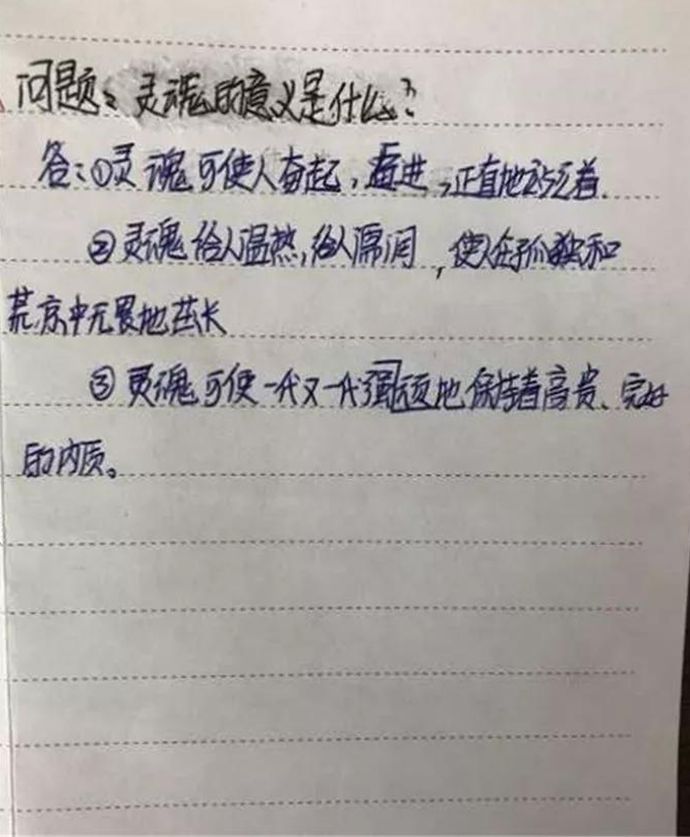 问题：灵魂的意义是什么？
答：①灵魂可使人奋起，奋进，正直地活着.
②灵魂给人温热，给人濡润，使人在孤独和
荒凉中无畏地茁长
③灵魂可使一代又一代强顽地保持着高贵、完好
的内质。